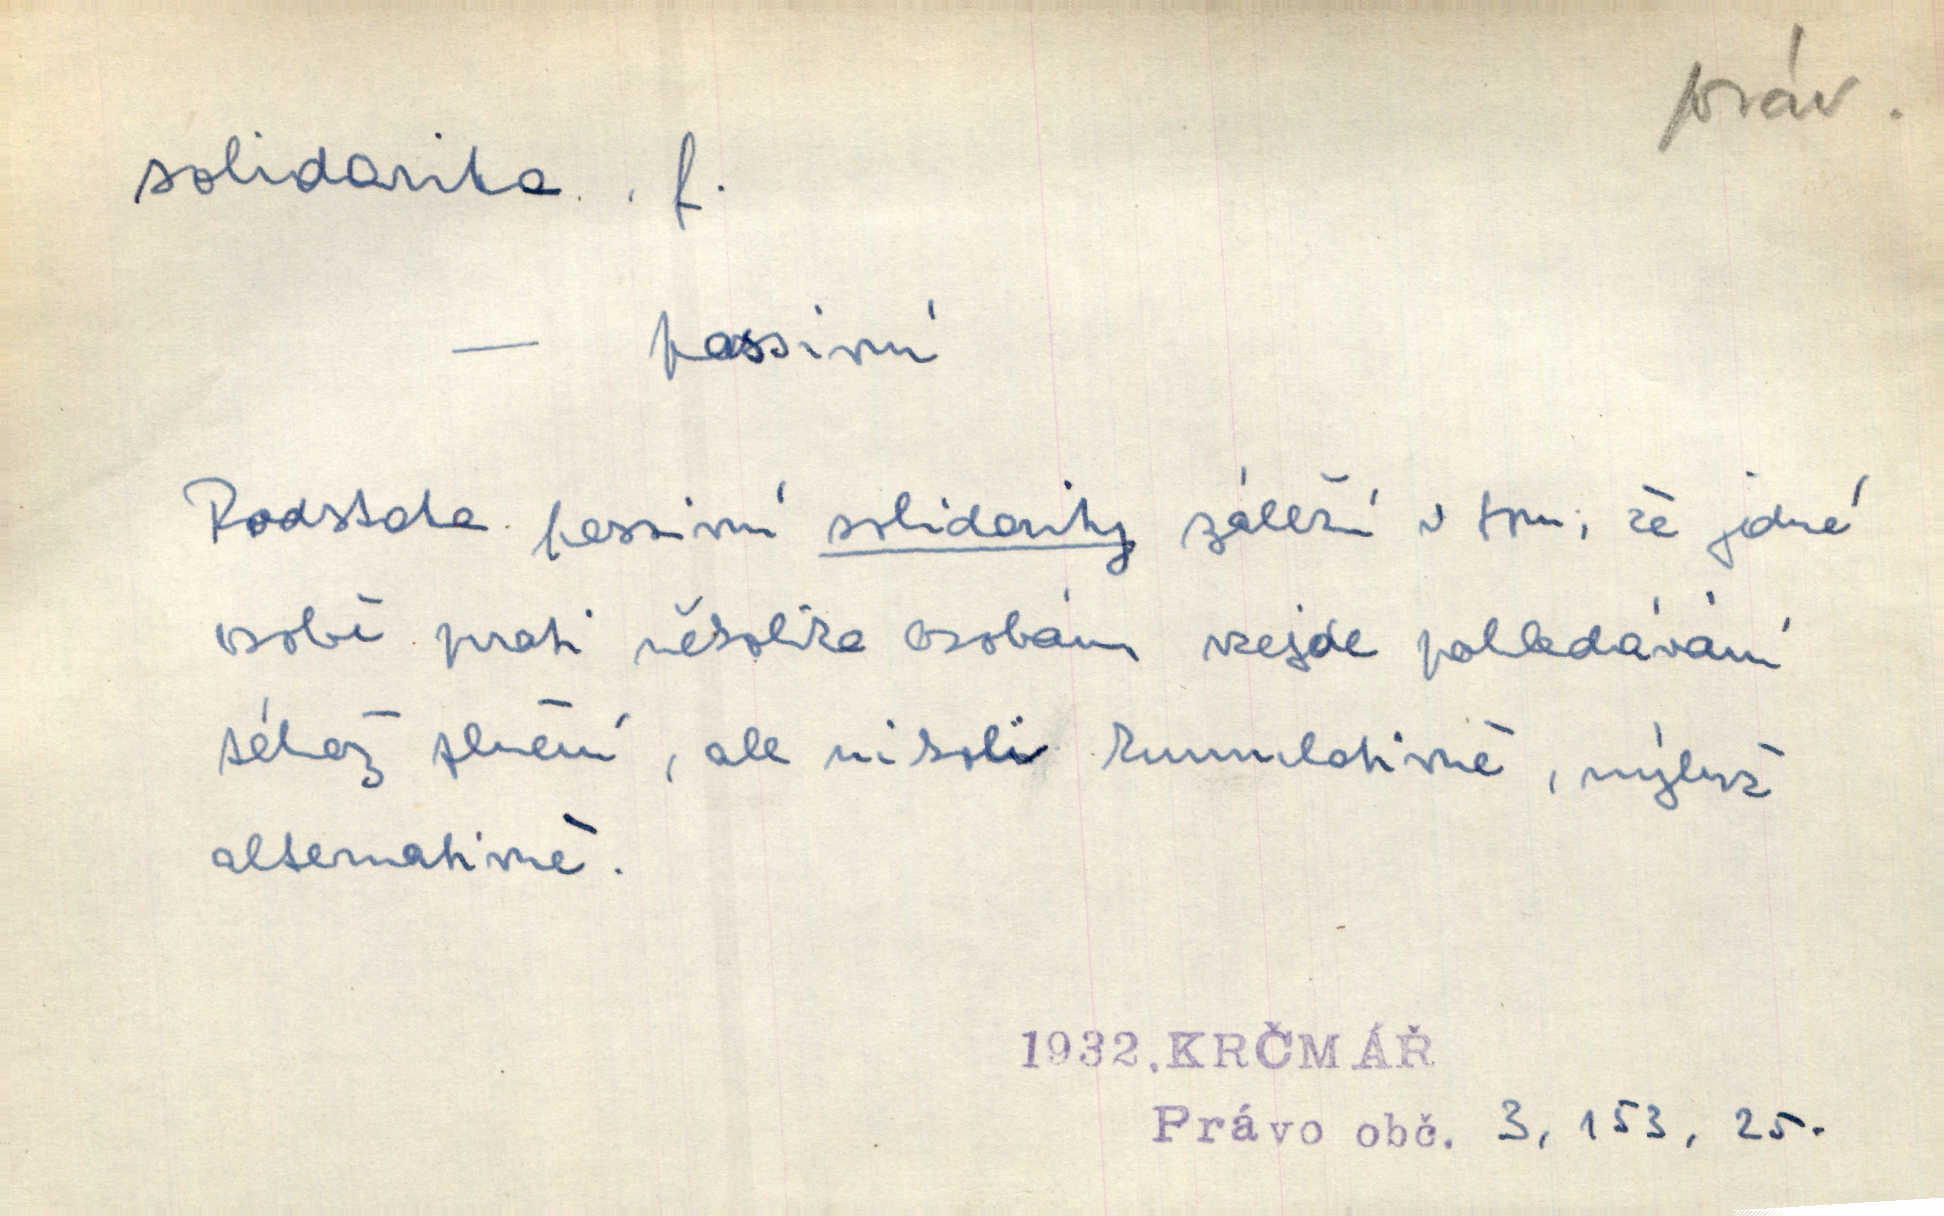 práv.
solidarita, f.
— passivní
Podstata passivní solidarity záleží v tom, že jedné
osobě proti několika osobám vzejde pohledávání
téhož plnění, ale nikoli kumulativně, nýbrž
alternativně.
1932. KRČMÁŘ
Právo obč. 3, 153, 25.